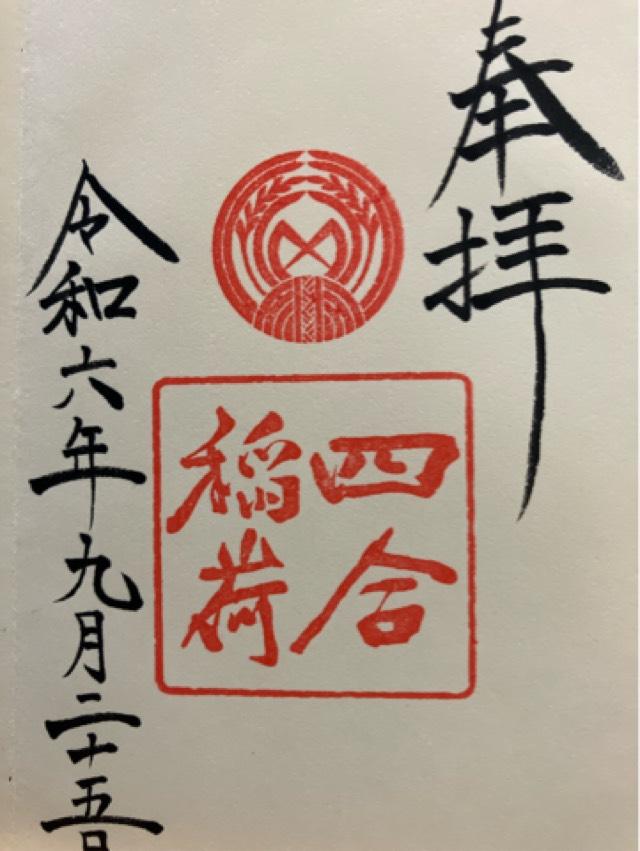 奉拝
四合
稲荷
令和六年九月二十五日